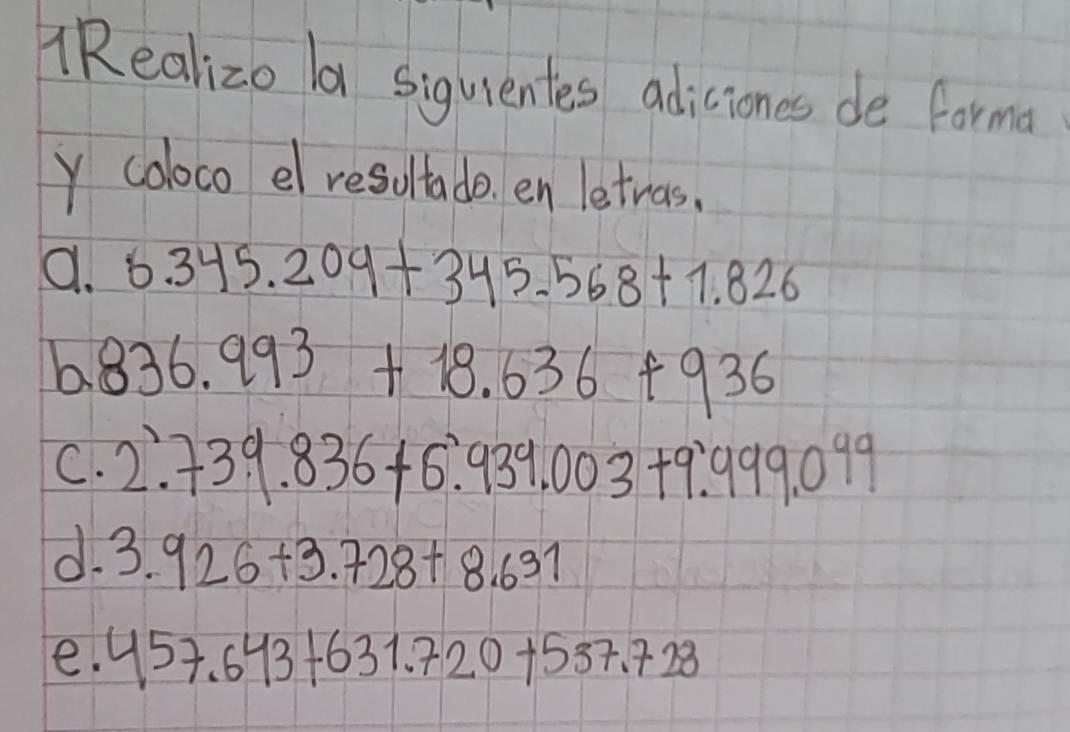 1Realizo la siguientes adiciones de forma
y coloco el resultado. en letras.
a. 6.345.209+345.568+1.826
b.836.993 + 18.636 + 936
c. 2'.739.836+6'.939.003+9'.999.099
d. 3.926+3.728+8.631
e. 457.643+631.720+537.728